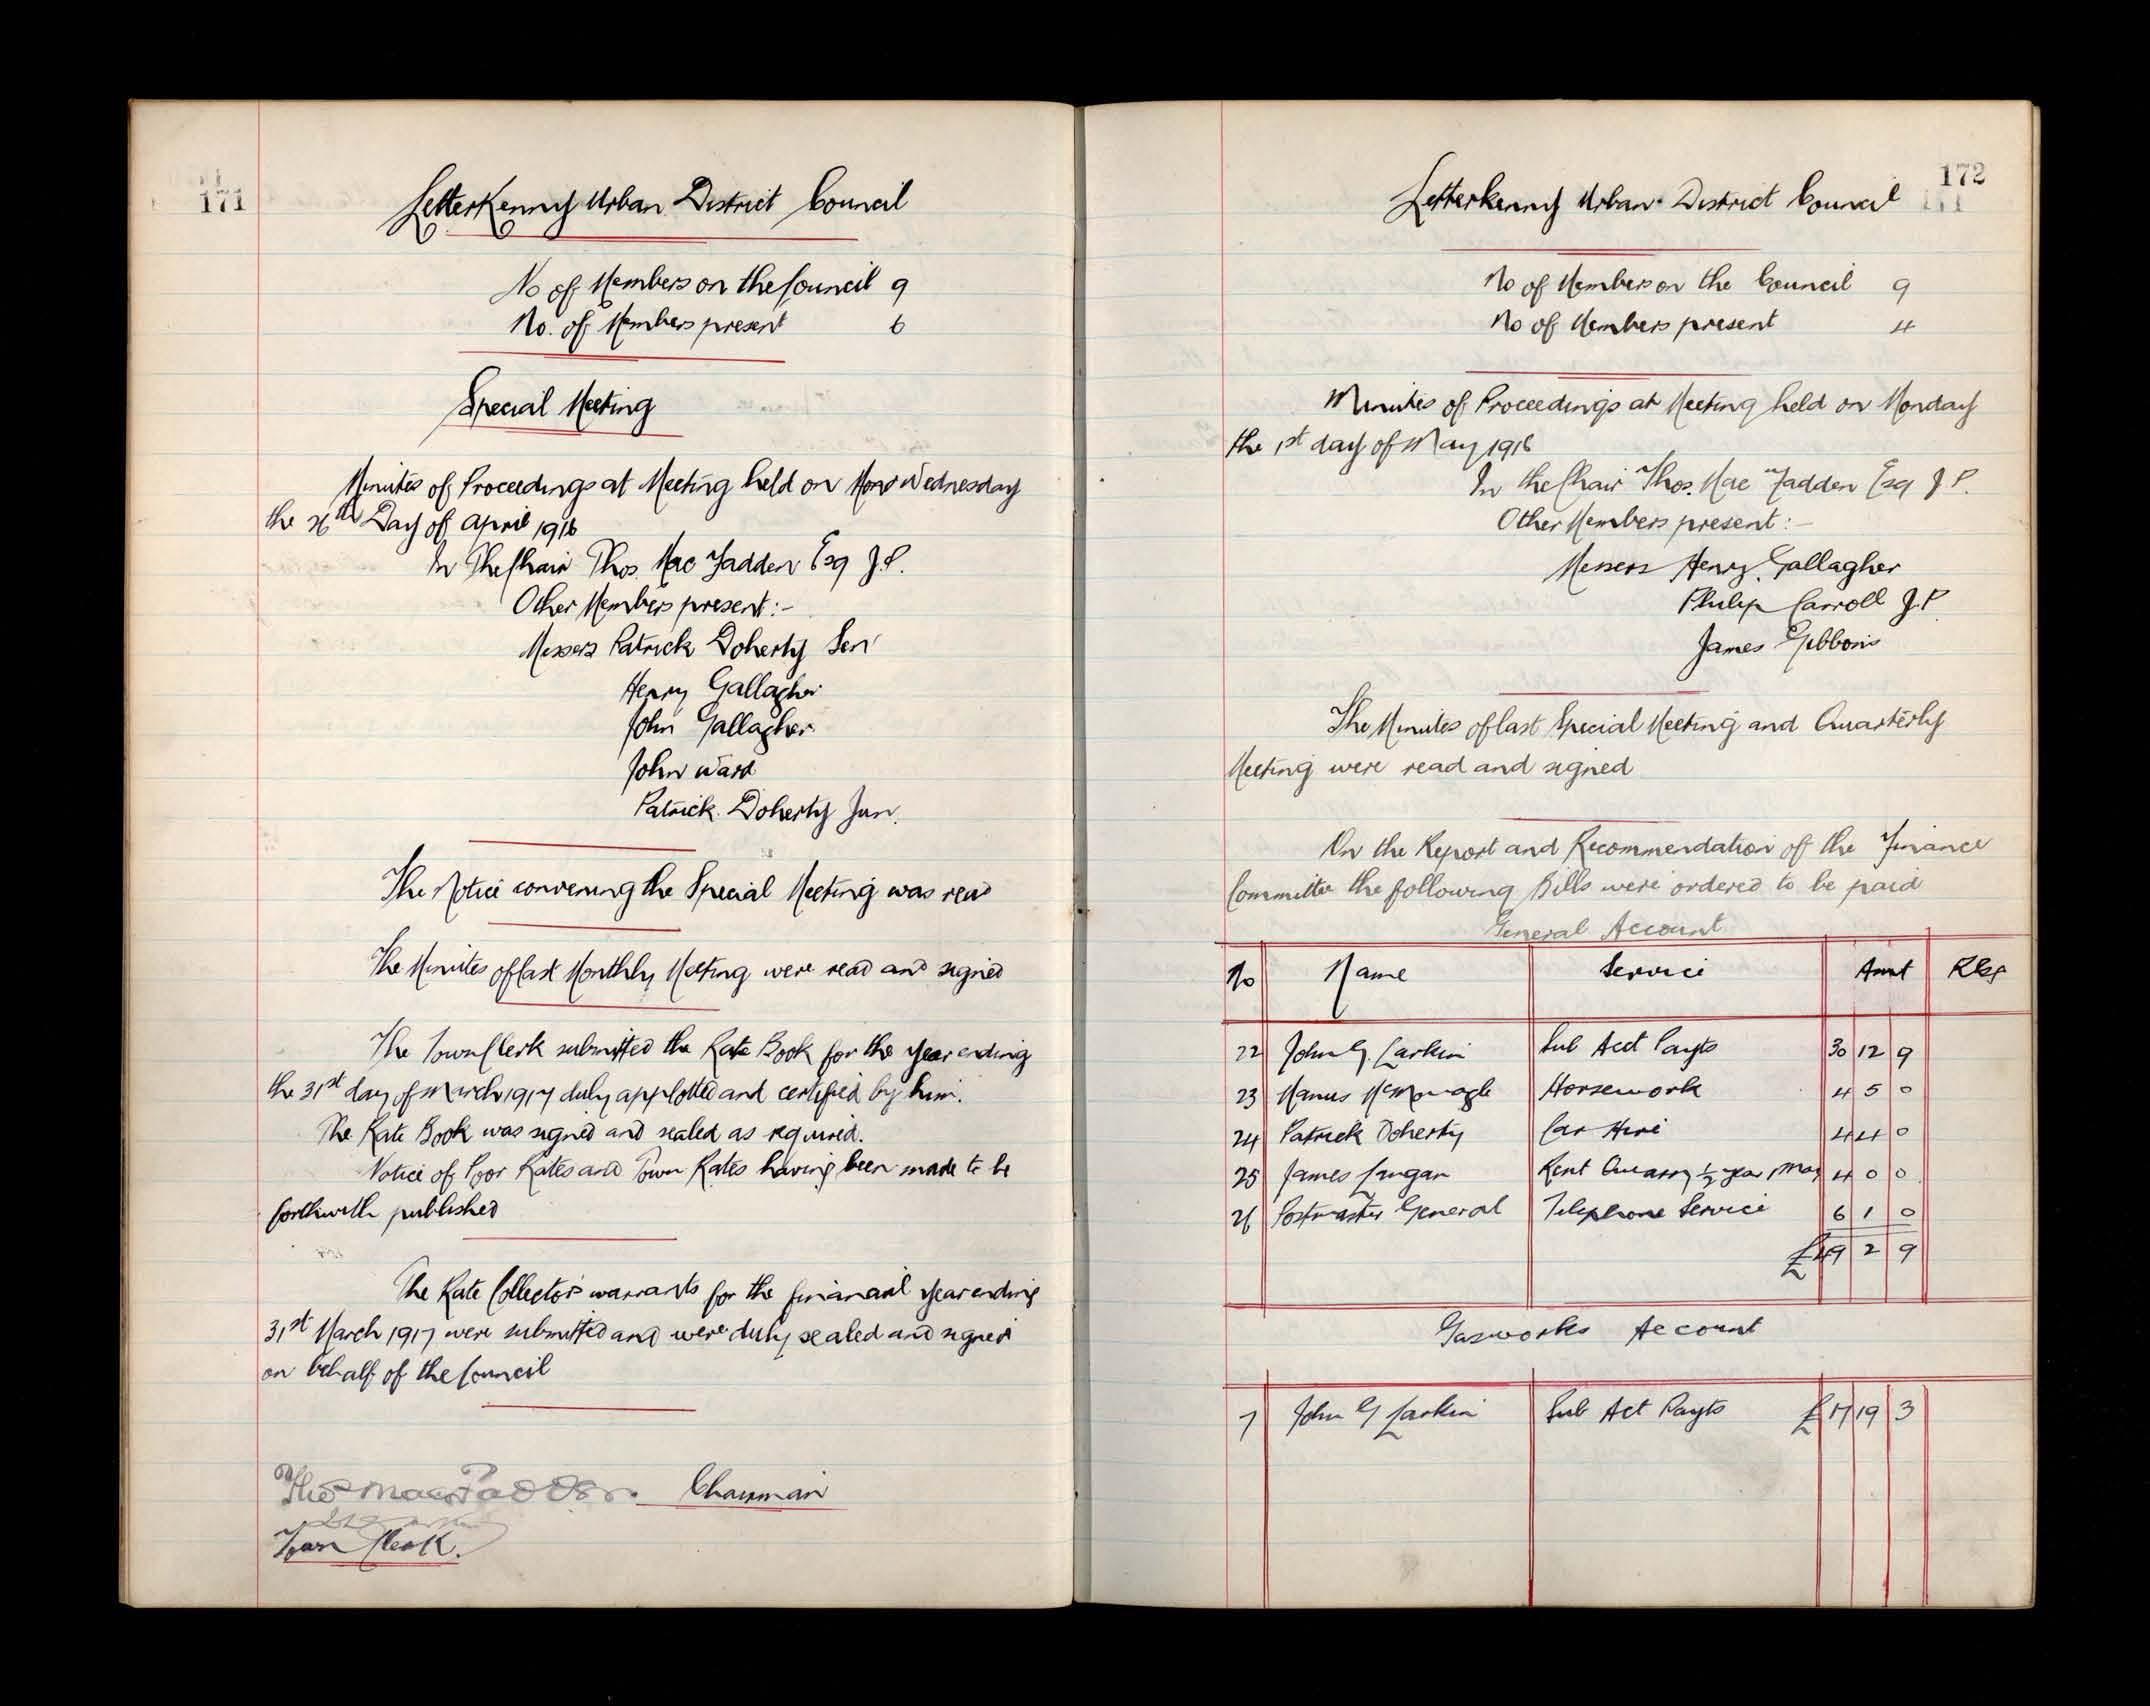 171
Letterkenny Urban District Council
No of Members on the Council 9
No. of Members present 6
Special Meeting
Minutes of Proceedings at Meeting held on Mond Wednesday
the 26th Day of April 1916
In The Chair Thos. Mac Fadden Esq J.P.
Other Members present:-
Messers Patrick Doherty Senr
Henry Gallagher
John Gallagher
John Ward
Patrick Doherty Jun.
The Notice convening the Special Meeting was read
The Minutes of last Monthly Meeting were read and signed
The Town Clerk submitted the Rate Book for the year ending
the 31st day of March 1917 duly applotted and certified by him.
The Rate Book was signed and sealed as required.
Notice of Poor Rates and Town Rates having been made to be
forthwith published
The Rate Collector's warrants for the financial year ending
31st March 1917 were submitted and were duly sealed and signed
on behalf of the Council
Thos MacFadden. Chairman
Town Clerk.
172
Letterkenny Urban District Council
No of Members on the Council 9
No of Members present 4
Minutes of Proceedings at Meeting held on Monday
the 1st day of May 1916
In the Chair Thos. Mac Fadden Esq J.P.
Other Members present:-
Messers Henry Gallagher
Philip Carroll J.P
James Gibbons
The Minutes of last Special Meeting and Quarterly
Meeting were read and signed
On the Report and Recommendation of the Finance
Committee the following Bills were ordered to be paid
General Account
No Name Service Amt
22 John G. Larkin Sub Acct Payts 30 12 9
23 Manus McMonagle Horsework 4 5 0
24 Patrick Doherty Car Hire 4 4 0
25 James Langan Rent Quarry ½ year May 4 0 0
26 Postmaster General Telephone Service 6 1 0
£49 2 9
Gasworks Account
7 John G Larkin Sub Act Payts £17 19 3